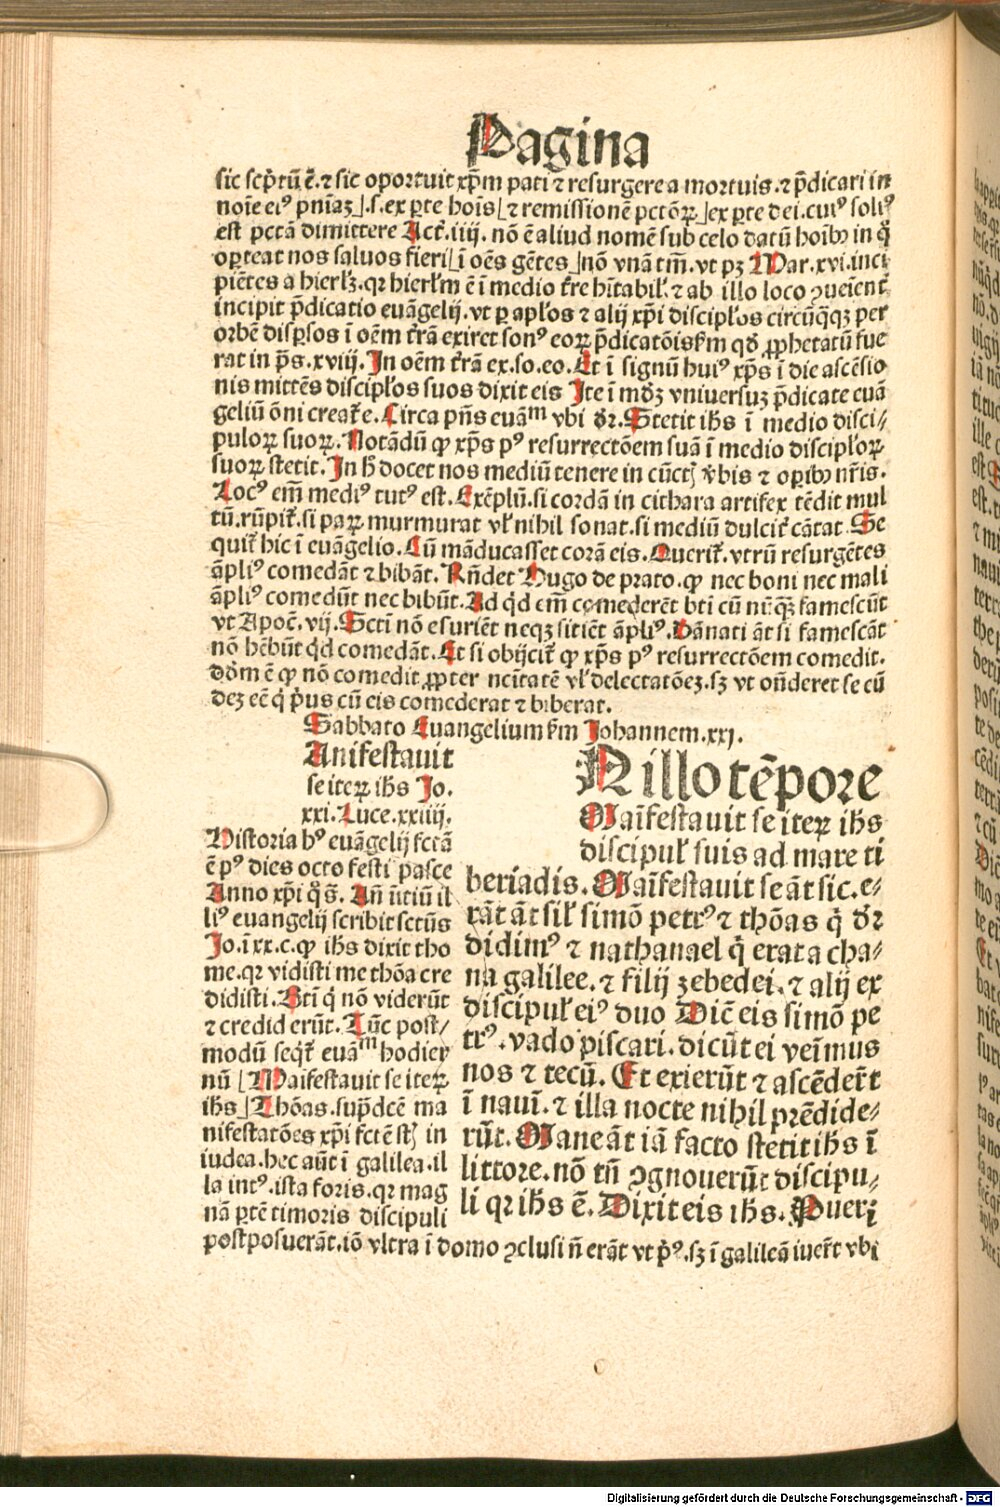 Pagina
sic scp̄tū ē. ⁊ sic oportuit xp̄m pati ⁊ resurgere a mortuis. ⁊ p̄dicari in
noīe eiꝰ pnīaꝫ⌋.s. ex ꝑte hoīs⌊⁊ remissionē pctōꝝ⌋ex ꝑte dei. cuiꝰ soliꝰ
est pctā dimittere Act̄. iiij. nō ē aliud nomē sub celo datū hoībꝰ in q̄
oꝑteat nos saluos fieri⌊ī oēs gētes⌋nō vnā tm̄. vt pꝫ Mar. xvi. inci
piētes a hierl̄ꝫ. qꝛ hierl̄m ē ī medio t̄re hītabil̄. ⁊ ab illo loco ꝯueīent̄
incipit p̄dicatio euāgelij. vt ꝑ apl̄os ⁊ alij xp̄i discipl̄os circūq̄qꝫ per
orbē disꝑsos ī oēm t̄rā exiret sonꝰ eoꝝ p̄dicatōis km̄ qd̄ ꝓphetatū fue
rat in ps̄. xviij. In oēm t̄rā ex. so. eo. Et ī signū huiꝰ xp̄s ī die ascēsio
nis mittēs discipl̄os suos dixit eis Ite ī mūdꝫ vniuersuꝫ p̄dicate euā
geliū ōni creat̄e. Circa pn̄s euāᵐ vbi dr̄. Stetit ihs̄ ī medio disci⸗
puloꝝ suoꝝ. Notādū ꝙ xp̄s pꝰ resurrectōem suā ī medio discipl̄oꝝ
suoꝝ stetit. In h̄ docet nos mediū tenere in cūctꝭ v̄bis ⁊ oꝑibꝰ nr̄is.
Locꝰ em̄ mediꝰ tutꝰ est. Exēplū. si cordā in cithara artifex tēdit mul
tū. rūpit̄. si paꝝ murmurat vl̄ nihil sonat. si mediū dulcit̄ cātat. Se
quit̄ hic ī euāgelio. Cū māducasset corā eis. Querit̄. vtrū resurgētes
āpliꝰ comedāt ⁊ bibāt. Rn̄det Hugo de prato. ꝙ nec boni nec mali
āpliꝰ comedūt nec bibūt. Ad qd̄ em̄ comederēt bt̄i cū nūq̄ꝫ famescūt
vt Apoc̄. vij. Scti nō esuriēt neqꝫ sitiēt āpliꝰ. Dānati āt si famescāt
nō hēbūt qd̄ comedāt. Et si obijcit̄ ꝙ xp̄s pꝰ resurrectōem comedit.
dd̄m ē ꝙ nō comedit ꝓpter nc̄itatē vl̄ delectatōeꝫ. sꝫ vt on̄deret se cū
deꝫ eē q̄ p̄us cū eis comederat ⁊ biberat.
Sabbato Euangelium km̄ Johannem. xxj.
Anifestauit
se iteꝝ ihs̄ Jo.
xxi. Luce. xxiiij.
Historia hꝰ euāgelij fctā
ē pꝰ dies octo festi pasce
Anno xp̄i q̄ s̄. An̄ īitiū il
liꝰ euangelij scribit sctūs
Jo. ī xx. c. ꝙ ihs̄ dixit tho
me. qꝛ vidisti me thōa cre
didisti. Bt̄i q̄ nō viderūt
⁊ crediderūt. Tūc post⸗
modū seqt̄ euāᵐ hodier
nū ⌊Maīfestauit se iteꝝ
ihs̄⌋Thōas. sup̄dcē ma
nifestatōes xp̄i fctē stꝭ in
iudea. hec aūt ī galilea. il
la intꝰ. ista foris. qꝛ mag
nā ꝑtē timoris discipuli
postposuerāt. iō vltra ī domo ꝯclusi n̄ erāt vt pꝰ. sꝫ ī galileā iuer̄t vbi
N illo tēpore
Maīfestauit se iteꝝ ihs̄
discipul̄ suis ad mare ti
beriadis. Maīfestauit se āt sic. e⸗
rāt āt sil̄ simō petrꝰ ⁊ thōas q̄ dr̄
didimꝰ ⁊ nathanael q̄ erat a cha⸗
na galilee. ⁊ filij zebedei. ⁊ alij ex
discipul̄ eiꝰ duo Dic̄ eis simō pe
trꝰ. vado piscari. dicūt ei veīmus
nos ⁊ tecū. Et exierūt ⁊ ascēder̄t
ī nauī. ⁊ illa nocte nihil prēdide⸗
rūt. Mane āt iā facto stetit ihs̄ ī
littore. nō tn̄ ꝯgnouerūt discipu⸗
li qꝛ ihs̄ ē. Dixit eis ihs̄. Pueri
Digitalisierung gefördert durch die Deutsche Forschungsgemeinschaft - DFG